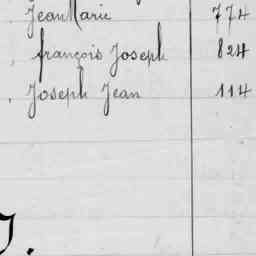 Jean Marie 774
François Joseph 824
Joseph Jean 114
J.